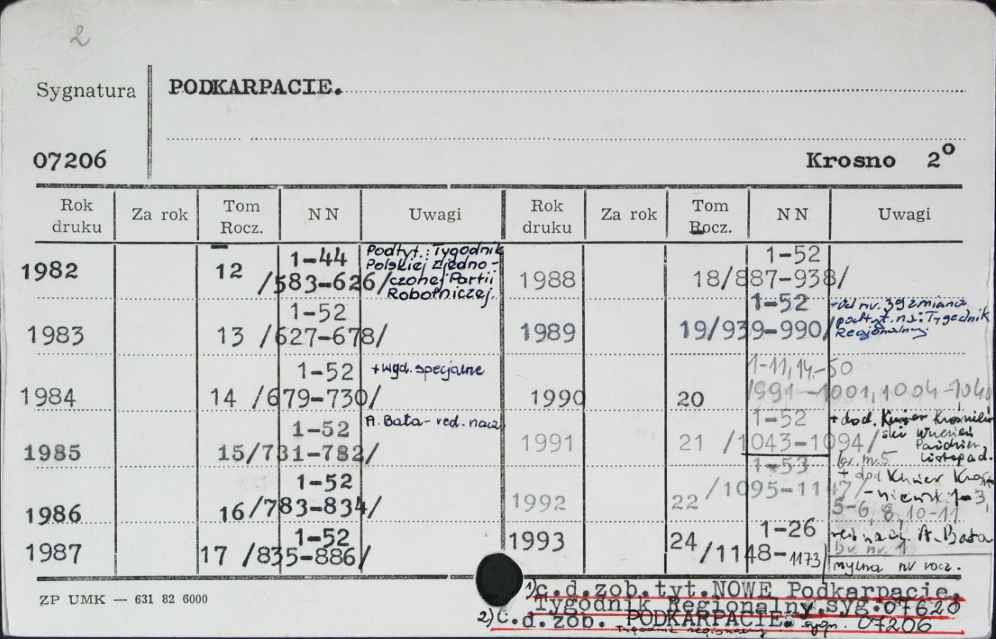 2
Sygnatura PODKARPACIE.
07206 Krosno 2°
Rok druku Za rok Tom Rocz. NN Uwagi Rok druku Za rok Tom Rocz. NN Uwagi
1982 12 1-44 /583-626/ Podtyt.: Tygodnik Polskiej Zjednoczonej Partii Robotniczej.
1983 13 1-52 /627-678/
1984 14 1-52 /679-730/ +wyd. specjalne
1985 15 1-52 /731-782/ A. Bata - red. nacz.
1986 16 1-52 /783-834/
1987 17 1-52 /835-886/
1988 18 1-52 /887-938/
1989 19 1-52 /939-990/ - Od nr. 39 zmiana podtyt. na: Tygodnik Regionalny
1990 20 1-11, 14-50 /991-1001, 1004-1040
1991 21 1-52 /1043-1094/ + dod. Kurier Wrzesień Listopad.
1992 22 1-53 /1095-1147/ + dod Kurier 1-3, 5-6, 8, 10-11
1993 24 1-26 /1148-1173/ A. Bata
br. nr. 1
mylna nr rocz.
ZP UMK — 631 82 6000
1) c.d.zob.tyt.NOWE Podkarpacie.
Tygodnik Regionalny.syg.07620
2) C.d.zob. PODKARPACIE. sygn. 07206
Tygodnik regionalny